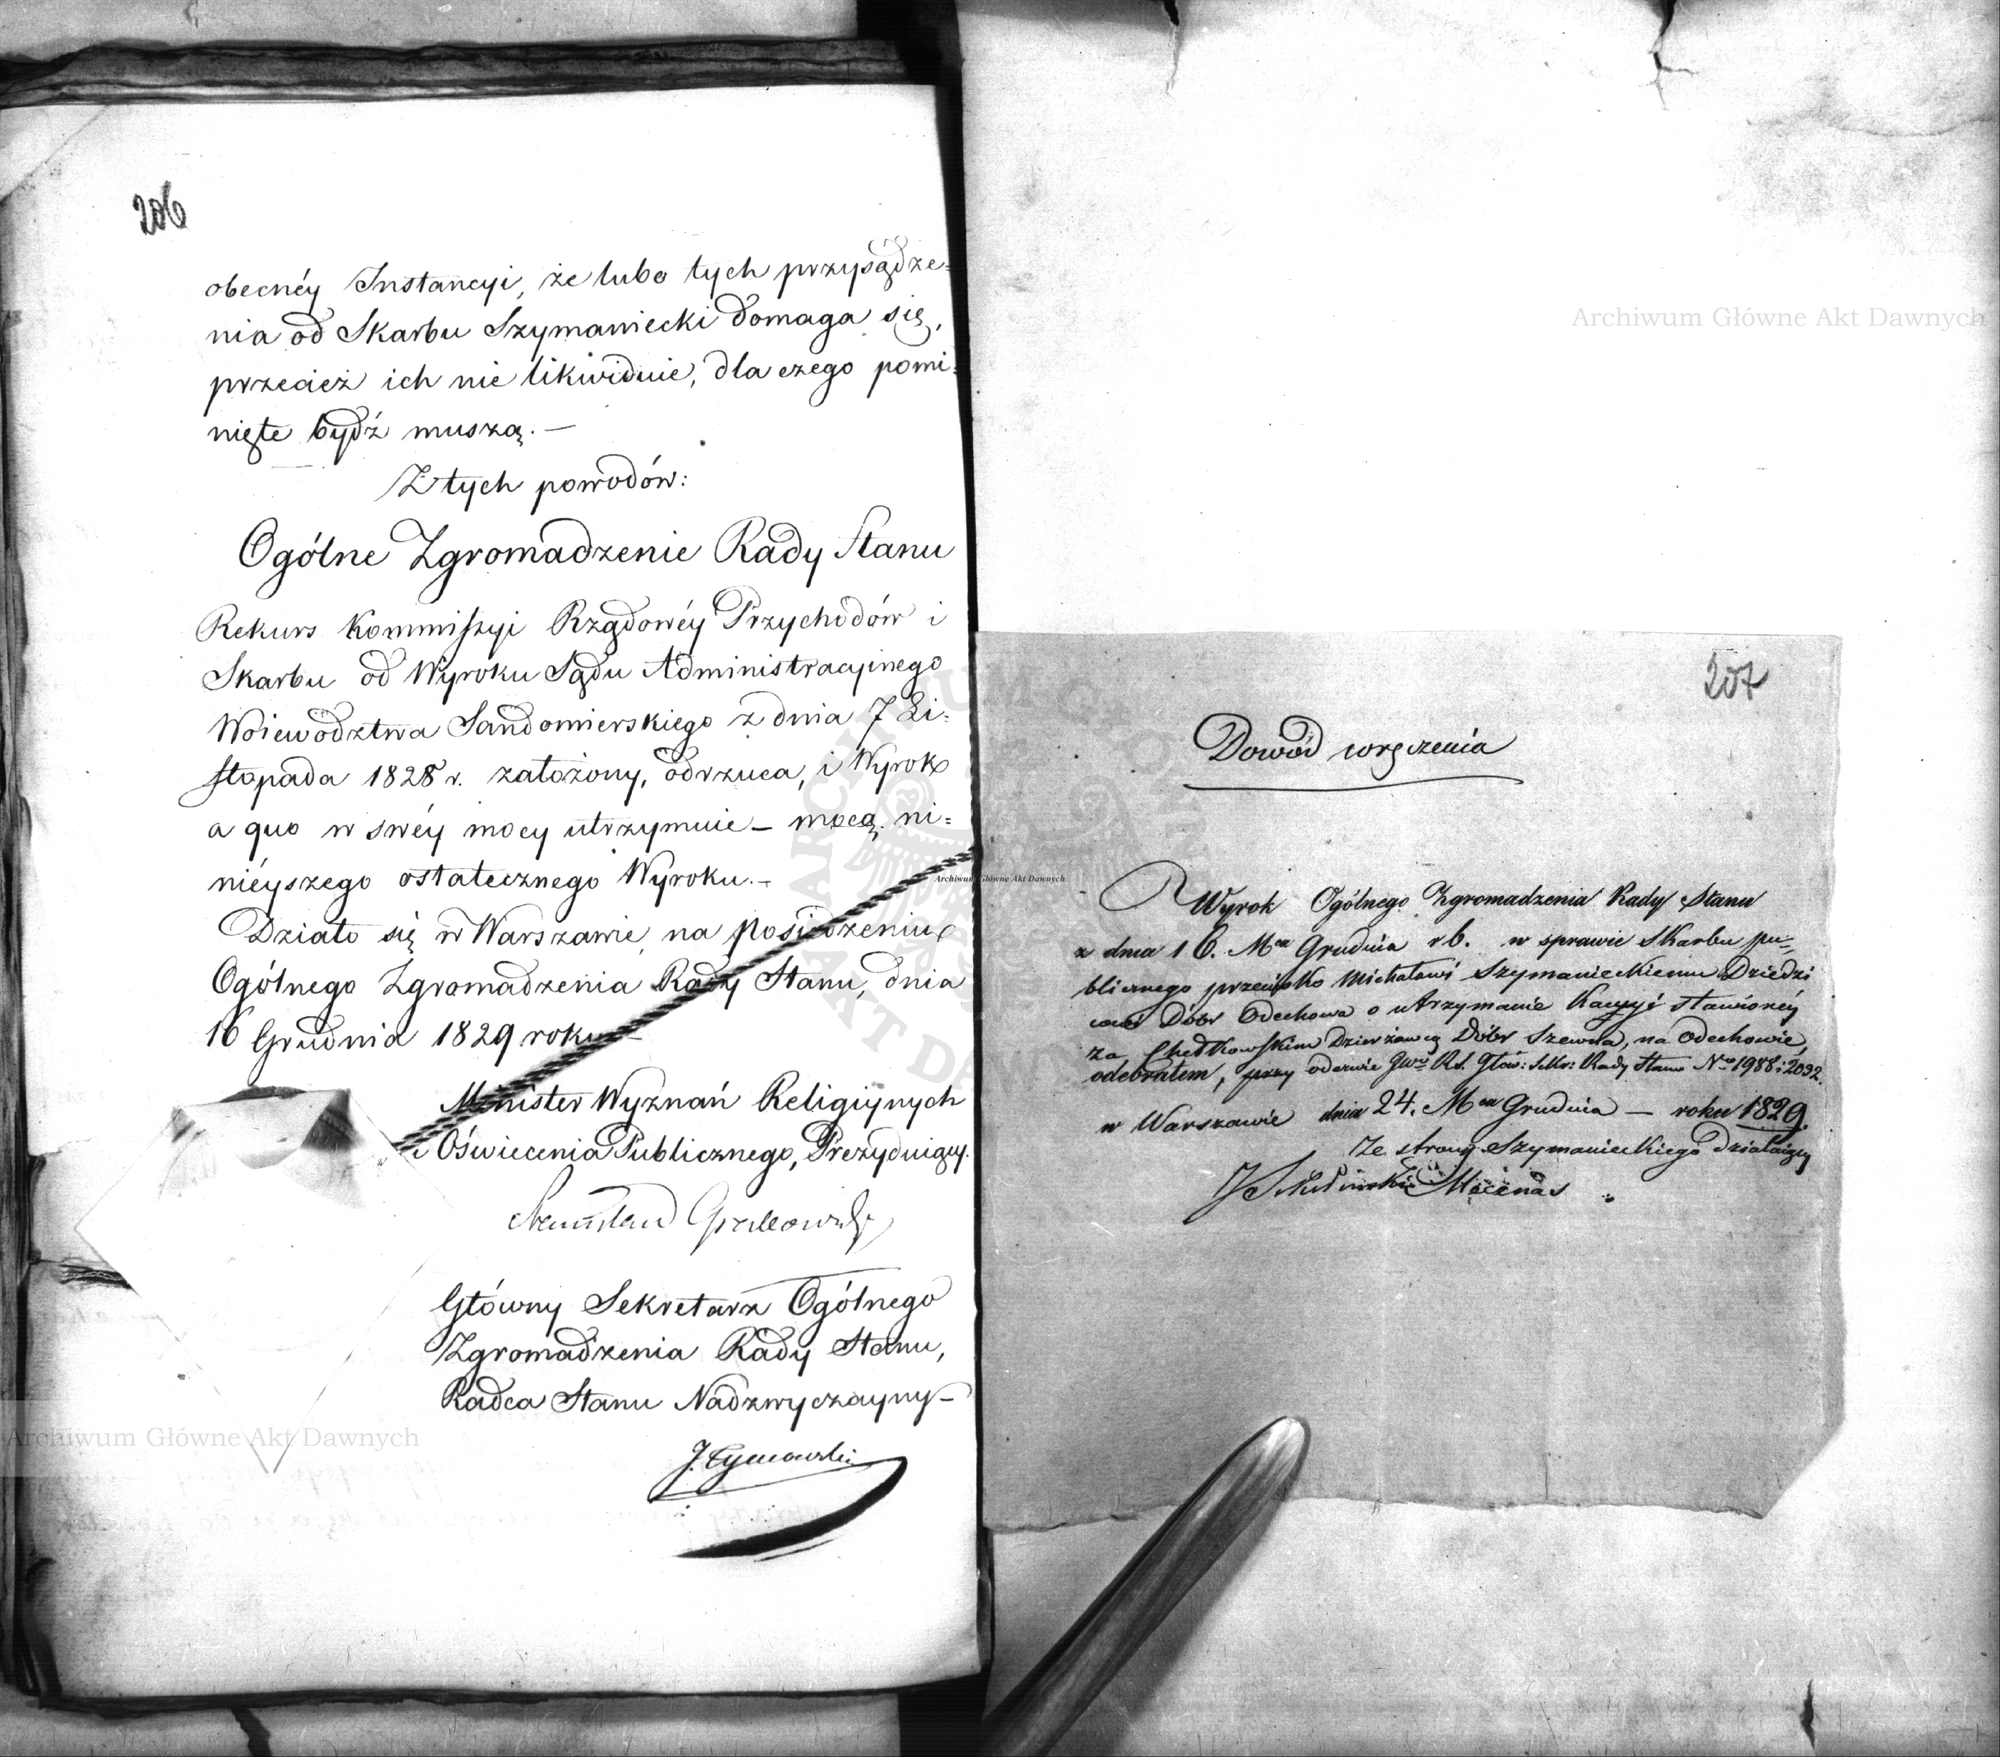 206
obecnéy Instancyi, że lubo tych przysądze=
nia od Skarbu Szymaniecki domaga się,
przecież ich nie likwiduie, dla czego pomi=
nięte bydź muszą. —
Z tych powodów:
Ogólne Zgromadzenie Rady Stanu
Rekurs Kommissyi Rządowéy Przychodów i
Skarbu od Wyroku Sądu Administracyinego
Woiewództwa Sandomierskiego z dnia 7 Li=
stopada 1828 r. założony, odrzuca, i Wyrok
a quo w swéy mocy utrzymuie — mocą ni=
niéyszego ostatecznego Wyroku. —
Działo się w Warszawie na posiedzeniu
Ogólnego Zgromadzenia Rady Stanu, dnia
16 Grudnia 1829 roku —
Minister Wyznań Religiynych
i Oświecenia Publicznego, Prezyduiący.
Stanisław Grabowski
Główny Sekretarz Ogólnego
Zgromadzenia Rady Stanu,
Radca Stanu Nadzwyczayny —
J. Tymowski
207
Dowód wręczenia
Wyrok Ogólnego Zgromadzenia Rady Stanu
z dnia 16. Mca Grudnia r b. w sprawie Skarbu pu=
blicznego przeciwko Michałowi Szymanieckiemu Dziedzi
cowi Dóbr Odechowa o utrzymanie Kaucyi stawionéy
za Chełkowskim Dzierżawcą Dóbr Szewna, na Odechowie,
odebrałem, przy odezwie Gwo Rs. Głów: Sekr: Rady Stanu No 1988 i 2032.
w Warszawie dnia 24. Mca Grudnia — roku 1829.
Ze strony Szymanieckiego działaiący
Mecenas
Archiwum Główne Akt Dawnych
Archiwum Główne Akt Dawnych
Archiwum Główne Akt Dawnych